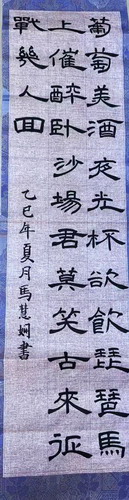 葡萄美酒夜光杯欲飲琵琶馬
上催醉臥沙場君莫笑古來征
戰幾人回
乙巳年夏月馬慧娴書